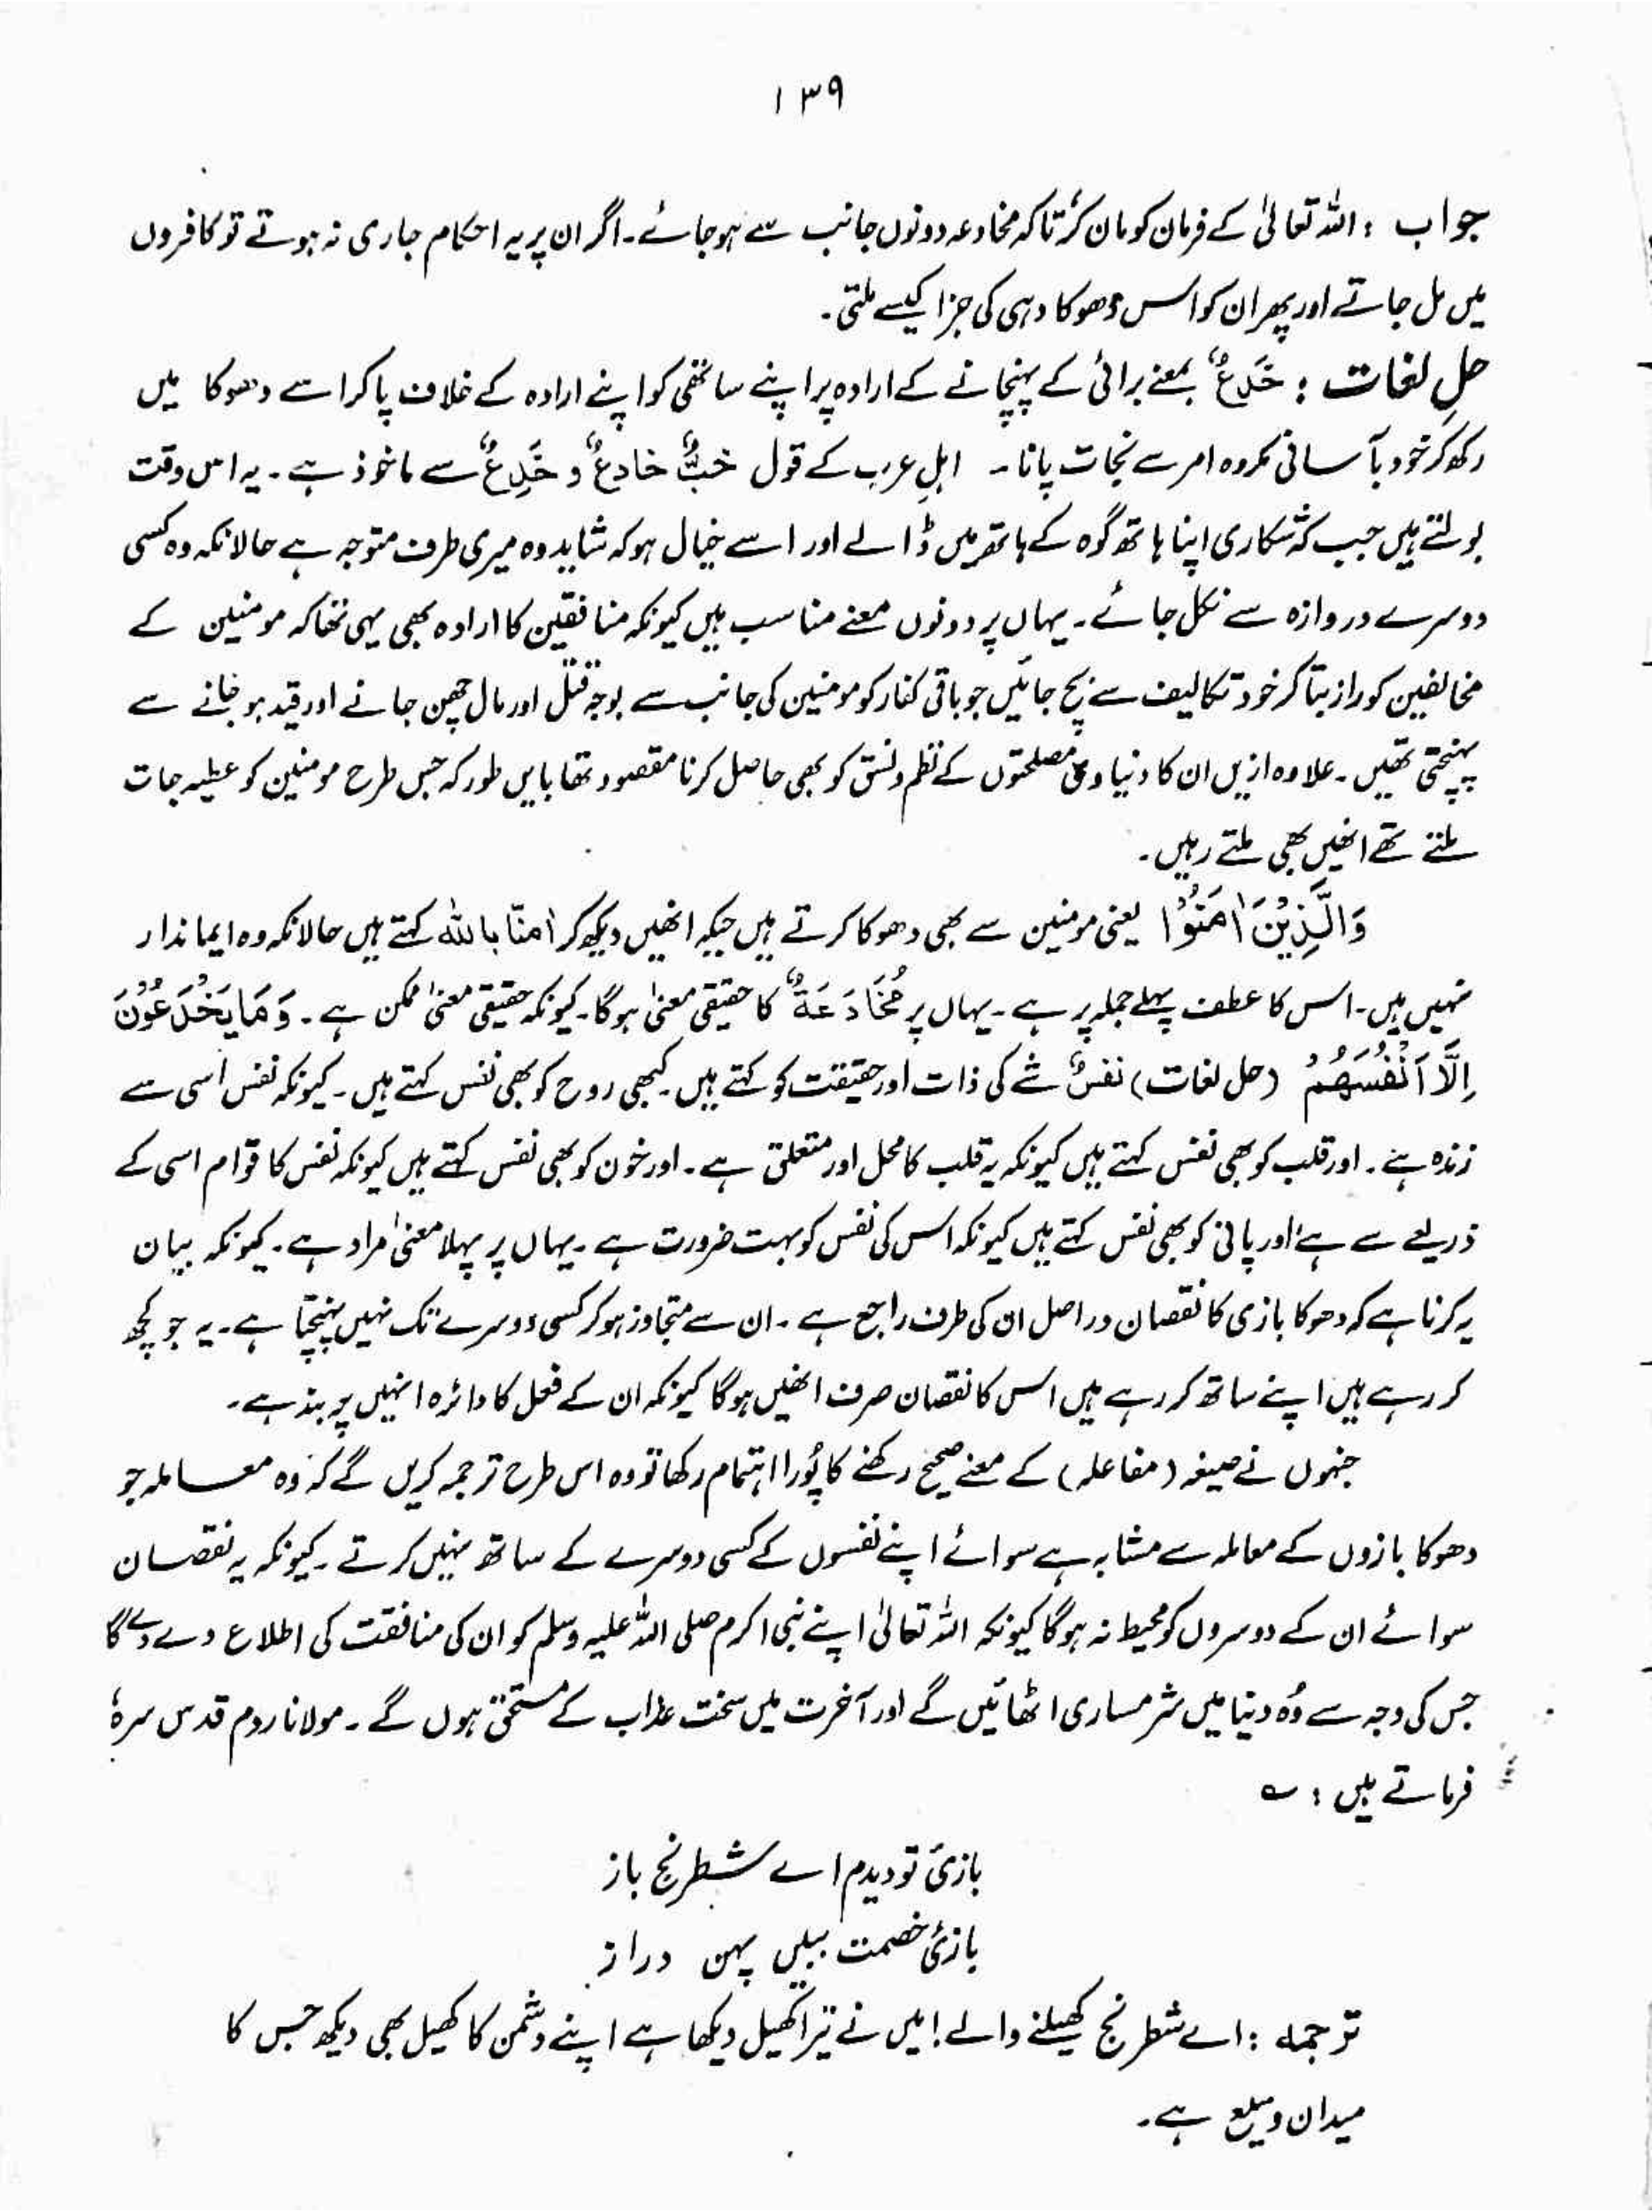 ۱۳۹
جواب : اللہ تعالیٰ کے فرمان کو مان کر تاکہ مخادعہ دونوں جانب سے ہو جائے۔ اگر ان پر یہ احکام جاری نہ ہوتے تو کافروں
میں مل جاتے اور پھر ان کو اس دھوکا دہی کی جزا کیسے ملتی۔
حلِ لغات : خَدعٌ بمعنے برائی کے پہنچانے کے ارادہ پر اپنے ساتھی کو اپنے ارادہ کے خلاف پا کر اسے دھوکا میں
رکھ کر خود بآسانی مکروہ امر سے نجات پانا۔ اہلِ عرب کے قول خبٌّ خادعٌ و خَدِعٌ سے ماخوذ ہے۔ یہ اس وقت
بولتے ہیں جب کہ شکاری اپنا ہاتھ گوہ کے ہاتھ میں ڈالے اور اسے خیال ہو کہ شاید وہ میری طرف متوجہ ہے حالانکہ وہ کسی
دوسرے دروازہ سے نکل جائے۔ یہاں پر دونوں معنے مناسب ہیں کیونکہ منافقین کا ارادہ بھی یہی تھا کہ مومنین کے
مخالفین کو راز بتا کر خود تکالیف سے بچ جائیں جو باقی کفار کو مومنین کی جانب سے بوجہ قتل اور مال چھن جانے اور قید ہو جانے سے
پہنچتی تھیں۔ علاوہ ازیں ان کا دنیاوی مصلحتوں کے نظم ونسق کو بھی حاصل کرنا مقصود تھا بایں طور کہ جس طرح مومنین کو عطیہ جات
ملتے تھے انھیں بھی ملتے رہیں۔
وَالَّذِيْنَ اٰمَنُوْا یعنی مومنین سے بھی دھوکا کرتے ہیں جبکہ انھیں دیکھ کر اٰمنّا باللہ کہتے ہیں حالانکہ وہ ایماندار
نہیں ہیں۔ اس کا عطف پہلے جملہ پر ہے۔ یہاں پر مُخَادَعَةٌ کا حقیقی معنیٰ ہوگا۔ کیونکہ حقیقی معنیٰ ممکن ہے۔ وَمَا يَخْدَعُوْنَ
اِلَّا اَنْفُسَهُمْ (حل لغات) نفسٌ شے کی ذات اور حقیقت کو کہتے ہیں۔ کبھی روح کو بھی نفس کہتے ہیں۔ کیونکہ نفس اسی سے
زندہ ہے۔ اور قلب کو بھی نفس کہتے ہیں کیونکہ یہ قلب کا محل اور متعلق ہے۔ اور خون کو بھی نفس کہتے ہیں کیونکہ نفس کا قوام اسی کے
ذریعے سے ہے اور پانی کو بھی نفس کہتے ہیں کیونکہ اس کی نفس کو بہت ضرورت ہے۔ یہاں پر پہلا معنیٰ مراد ہے۔ کیونکہ بیان
یہ کرنا ہے کہ دھوکا بازی کا نقصان دراصل ان کی طرف راجع ہے۔ ان سے متجاوز ہو کر کسی دوسرے تک نہیں پہنچتا ہے۔ یہ جو کچھ
کر رہے ہیں اپنے ساتھ کر رہے ہیں اس کا نقصان صرف انھیں ہوگا کیونکہ ان کے فعل کا دائرہ انہیں پر بند ہے۔
جنہوں نے صیغہ (مفاعلہ) کے معنے صحیح رکھنے کا پُورا اہتمام رکھا تو وہ اس طرح ترجمہ کریں گے کہ وہ معاملہ جو
دھوکا بازوں کے معاملہ سے مشابہ ہے سوائے اپنے نفسوں کے کسی دوسرے کے ساتھ نہیں کرتے۔ کیونکہ یہ نقصان
سوائے ان کے دوسروں کو محیط نہ ہوگا کیونکہ اللہ تعالیٰ اپنے نبی اکرم صلی اللہ علیہ وسلم کو ان کی منافقت کی اطلاع دے دے گا
جس کی وجہ سے وُہ دنیا میں شرمساری اٹھائیں گے اور آخرت میں سخت عذاب کے مستحق ہوں گے۔ مولانا روم قدس سرہٗ
فرماتے ہیں : ؎
بازیٔ تو دیدم اے شطرنج باز
بازیٔ خصمت ببیں پہن دراز
ترجمہ : اے شطرنج کھیلنے والے! میں نے تیرا کھیل دیکھا ہے اپنے دشمن کا کھیل بھی دیکھ جس کا
میدان وسیع ہے۔